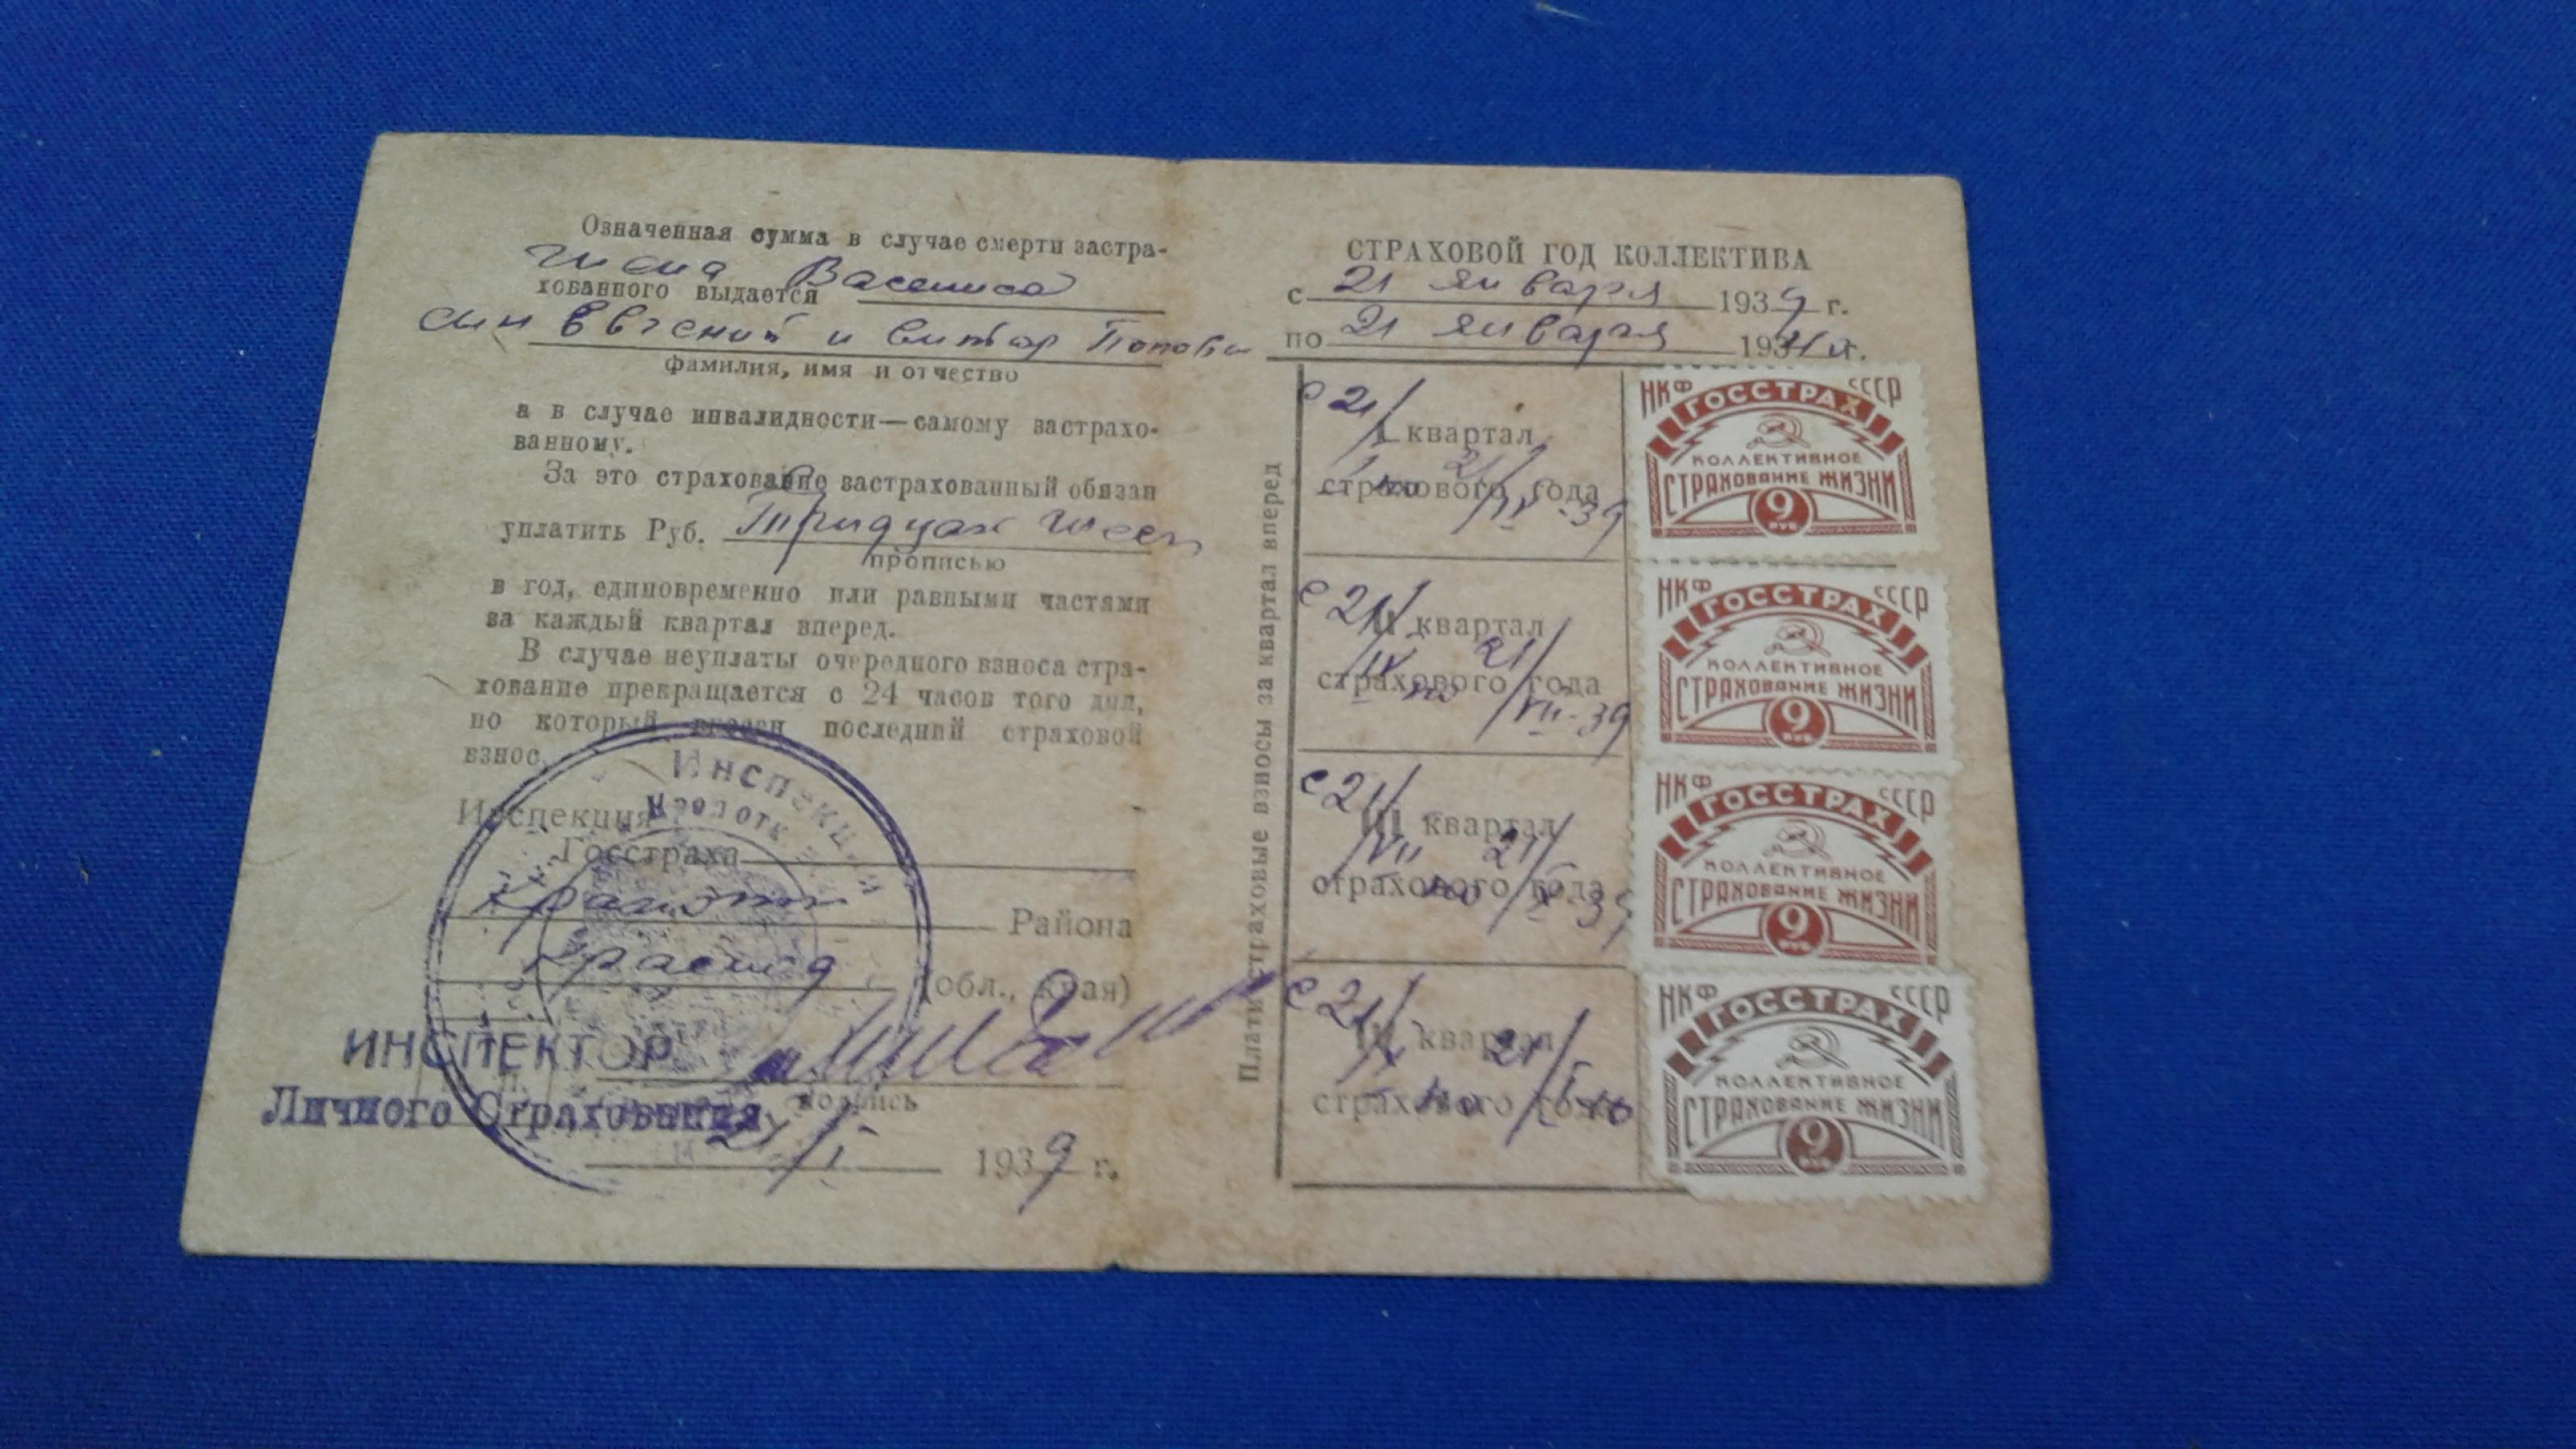 Означенная сумма в случае смерти застра-
хованного выдается
сын Евгений и Виктор Поповы
фамилия, имя и отчество
а в случае инвалидности—самому застрахо-
ванному.
За это страхование застрахованный обязан
уплатить Руб. Тридцать шесть
прописью
в год, единовременно или равными частями
за каждый квартал вперед.
В случае неуплаты очередного взноса стра-
хование прекращается с 24 часов того дня,
по который внесен последний страховой
взнос.
Инспекция
Госстраха
Района
(обл., края)
ИНСПЕКТОР
Личного Страхования
подпись
21/I 1939 г.
Инспекция
СТРАХОВОЙ ГОД КОЛЛЕКТИВА
с 21 января 1939 г.
по 21 января 1940 г.
Платит страховые взносы за квартал вперед
с 21/I по 21/IV-39
I квартал
страхового года
с 21/IV по 21/VII-39
II квартал
страхового года
с 21/VII по 21/X-39
III квартал
страхового года
с 21/X по 21/I-40
IV квартал
страхового года
НКФ СССР
ГОССТРАХ
КОЛЛЕКТИВНОЕ
СТРАХОВАНИЕ ЖИЗНИ
9
РУБ
НКФ СССР
ГОССТРАХ
КОЛЛЕКТИВНОЕ
СТРАХОВАНИЕ ЖИЗНИ
9
РУБ
НКФ СССР
ГОССТРАХ
КОЛЛЕКТИВНОЕ
СТРАХОВАНИЕ ЖИЗНИ
9
РУБ
НКФ СССР
ГОССТРАХ
КОЛЛЕКТИВНОЕ
СТРАХОВАНИЕ ЖИЗНИ
9
РУБ